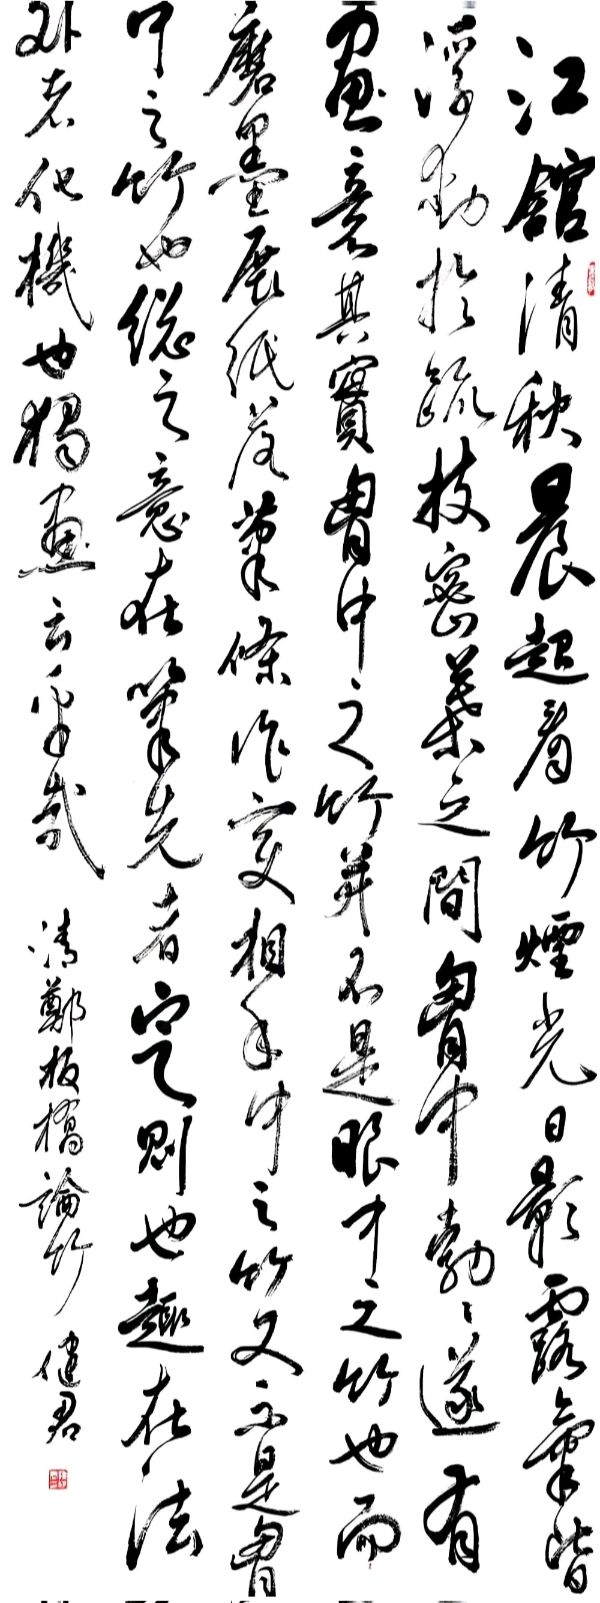 江館清秋晨起看竹煙光日影露氣皆
浮動於疏枝密葉之間胷中勃々遂有
畫意其實胷中之竹并不是眼中之竹也而
磨墨展紙落筆倏作变相手中之竹又不是胷
中之竹也總之意在筆先者定則也趣在法
外者化機也獨畫云乎哉
清鄭板橋論竹
健君